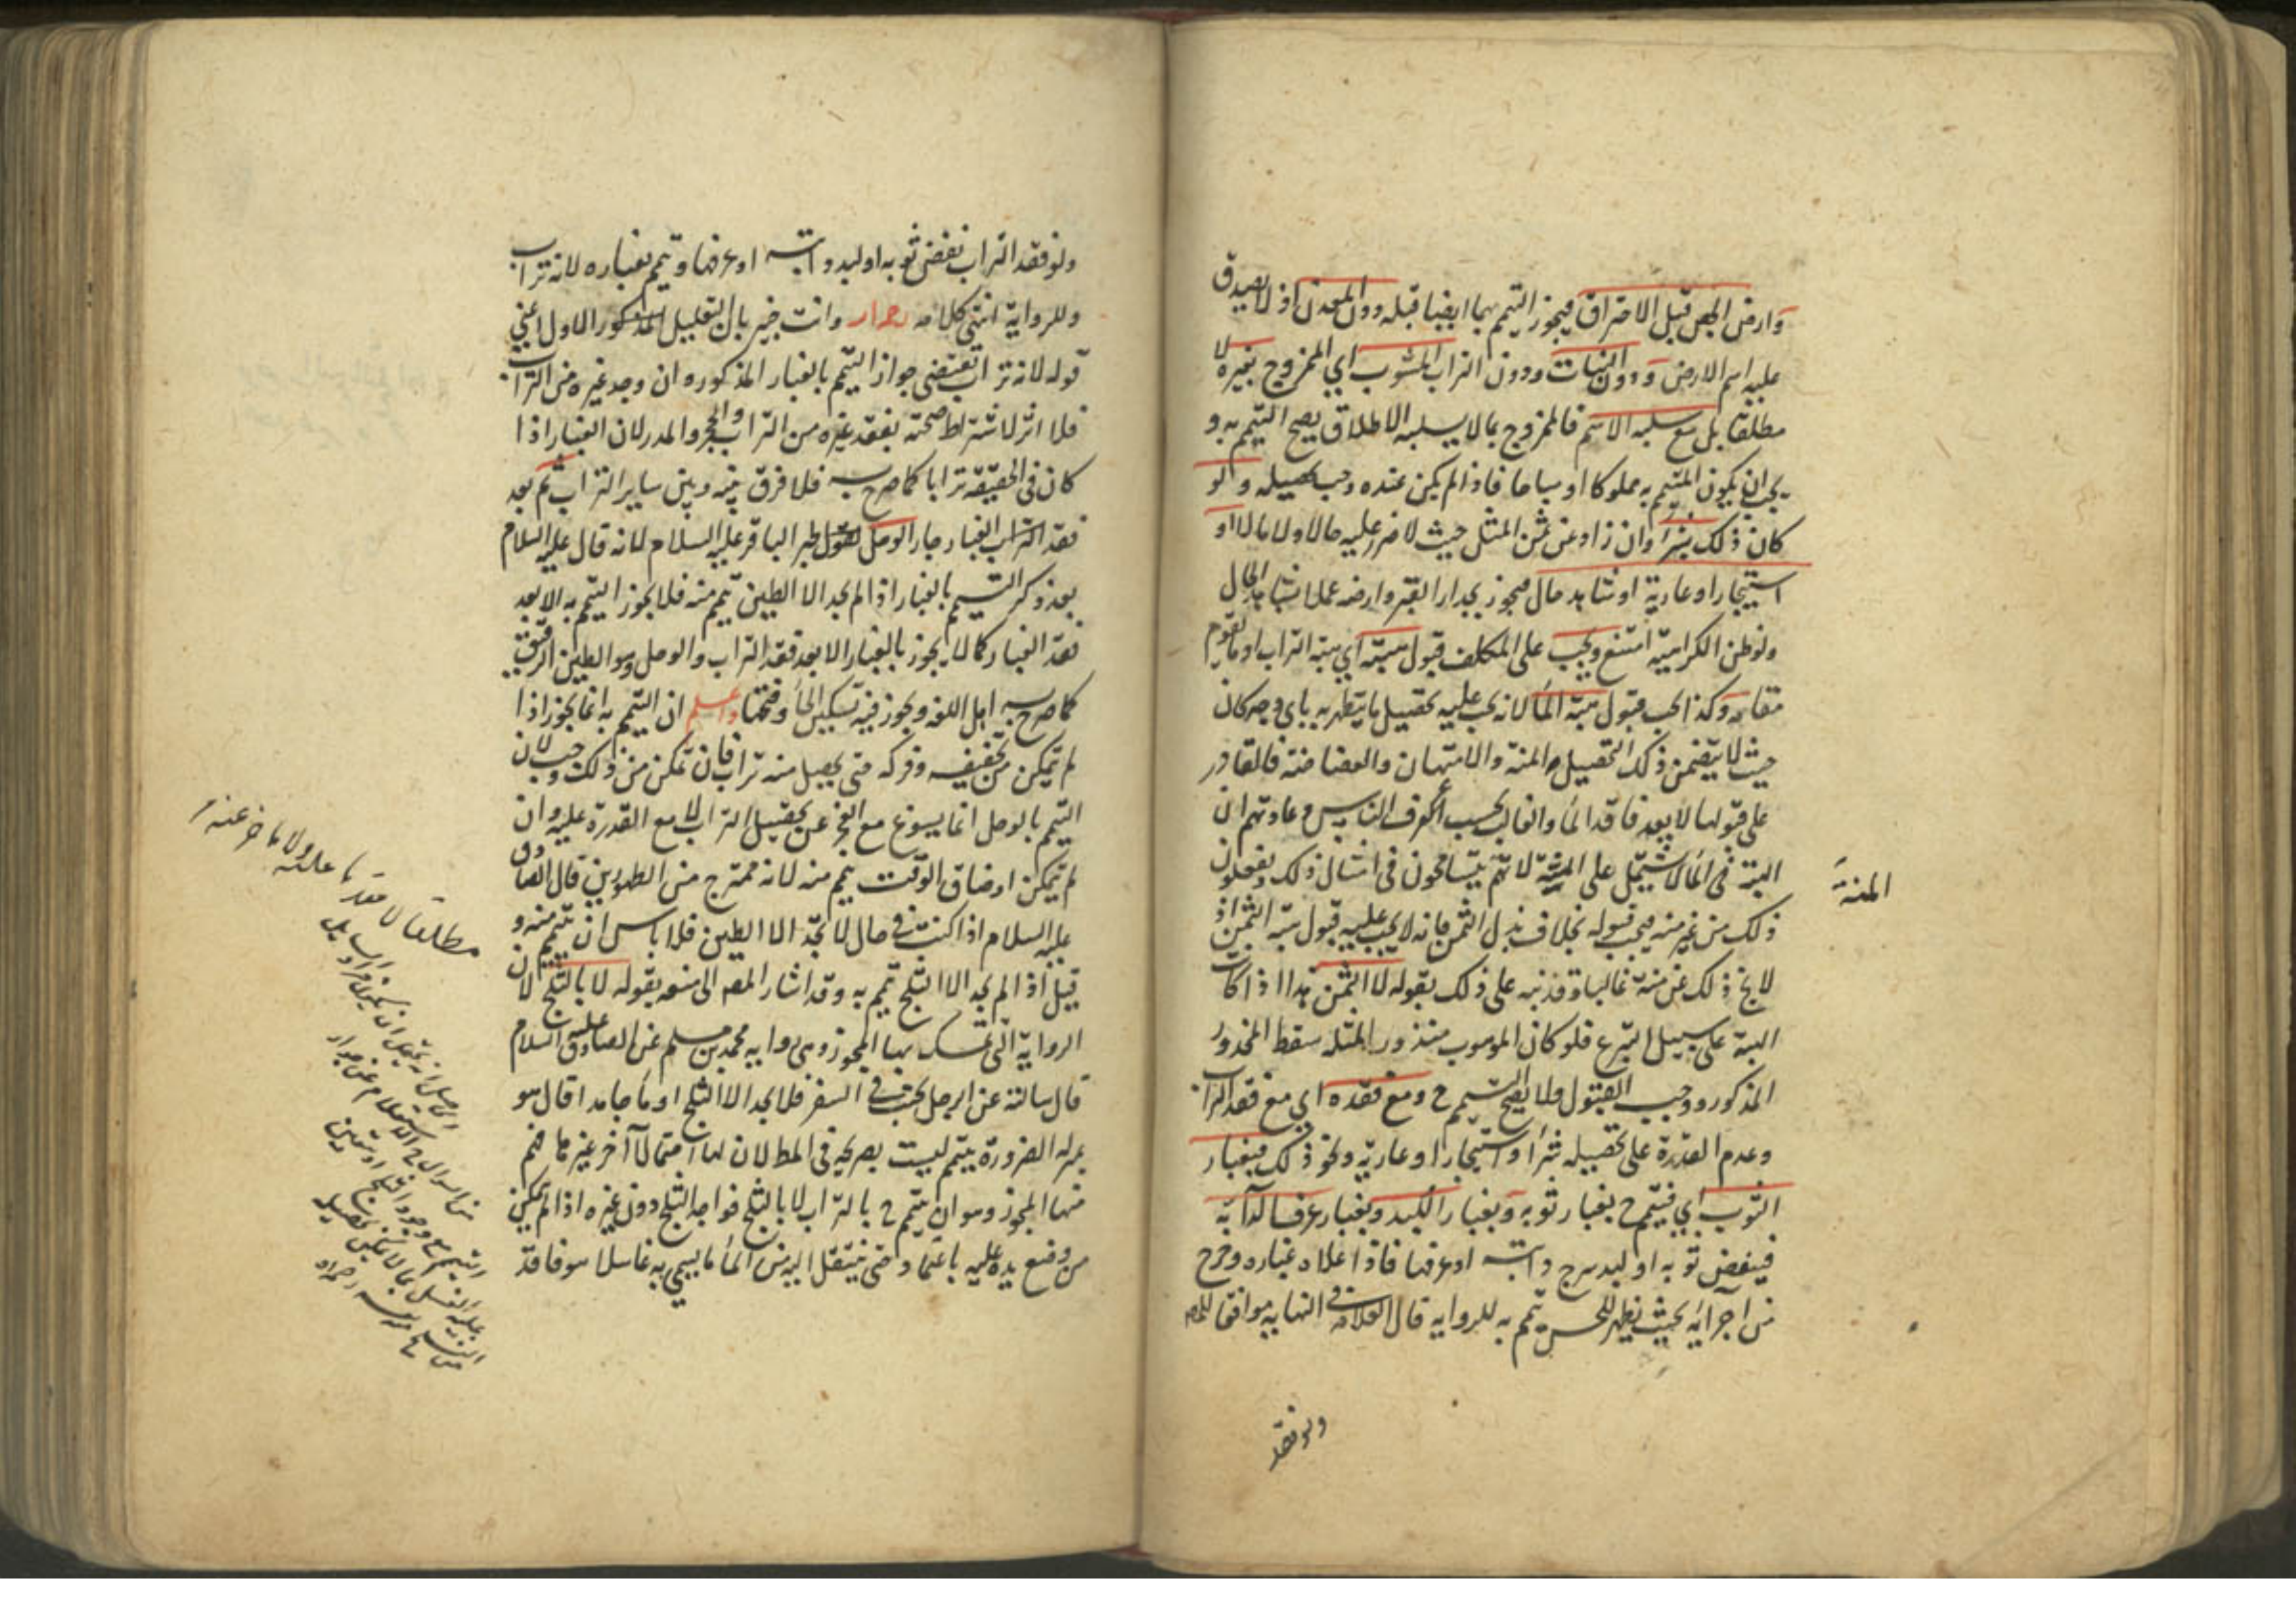 وارض الجص قبل الاحتراق فيجوز التيمم بهما ايضا قبله ودون المعدن اذ لا يصدق
عليه اسم الارض ودون النبات ودون التراب المشوب اي الممزوج بغيره لا
مطلقا بل مع سلبه الاسم فالممزوج بما لا يسلبه الاطلاق يصح التيمم به و
يجب ان يكون المتيمم به مملوكا او مباحا فاذا لم يكن عنده وجب تحصيله ولو
كان ذلك بشراء وان زاد عن ثمن المثل حيث لا ضرر عليه حالا ولا مالا او
استيجار او عارية او شاهد حال فيجوز بجدار الغير وارضه عملا بشاهد الحال
ولو ظن الكراهية امتنع ويجب على المكلف قبول هبته اي هبة التراب او ما يقوم
مقامه وكذا يجب قبول هبة الماء لانه يجب عليه تحصيل ما يتطهر به باي وجه كان
حيث لا يتضمن ذلك التحصيل المنة والامتهان والغضاضة فالقادر
على قبولها لا يعد فاقد الماء والغالب بحسب اعرف الناس وعادتهم ان
الهبة في الماء لا تشتمل على المنة لانهم يتسامحون في امثال ذلك ويفعلون
ذلك من غير منة فيجب قبوله بخلاف بذل الثمن فانه لا يجب عليه قبول هبة الثمن اذ
لا يخ ذلك عن منة غالبا وقد نبه على ذلك بقوله لا الثمن هذا اذا كانت
الهبة على سبيل التبرع فلو كان الموهوب منذورا لمثله سقط المحذور
المذكور ووجب القبول ولا يصح التيمم ح ومع فقده اي مع فقد التراب
وعدم القدرة على تحصيله شراء واستيجارا وعارية ونحو ذلك فبغبار
الثوب اي فيتيمم ح بغبار ثوبه وبغبار اللبد وبغبار عرف الدابة
فينفض ثوبه او لبد سرج دابته او عرفها فاذا اعلاه غباره وخرج
من اجزائه بحيث يظهر للحس تيمم به للرواية قال العلامة في النهاية موافقا للمص
المنة
ولو فقد
ولو فقد التراب نفض ثوبه او لبد دابته او عرفها وتيمم بغباره لانه تراب
وللرواية انتهى كلامه وانت خبير بان التعليل المذكور الاول اعني
قوله لانه تراب تقتضي جواز التيمم بالغبار المذكور وان وجد غيره من التراب
فلا اثر لاشتراط صحته بفقد غيره من التراب والحجر والمدر لان الغبار اذا
كان في الحقيقة ترابا كما صرح به فلا فرق بينه وبين ساير التراب ثم بعد
فقد التراب الغبار جاز الوحل لخبر الباقر عليه السلام لانه قال عليه السلام
بعد ذكر التيمم بالغبار اذا لم يجد الا الطين تيمم منه فلا يجوز التيمم به الا بعد
فقد الغبار كما لا يجوز بالغبار الا بعد فقد التراب والوحل وهو الطين الرقيق
كما صرح به اهل اللغة ويجوز فيه تسكين الحاء وفتحها واعلم ان التيمم به انما يجوز اذا
لم يتمكن من تجفيفه وفركه حتى يحصل منه تراب فان تمكن من ذلك وجب لان
التيمم بالوحل انما يسوغ مع العجز عن تحصيل التراب لا مع القدرة عليه وان
لم يتمكن او ضاق الوقت تيمم منه لانه ممتزج من الطهورين قال الصادق
عليه السلام اذا كنت في حال لا تجد الا الطين فلا باس ان تتيمم منه و
قيل اذا لم يجد الا الثلج تيمم به وقد اشار المص الى منعه بقوله لا بالثلج لان
الرواية التي تمسك بها المجوز وهي رواية محمد بن مسلم عن الصادق عليه السلام
قال سالته عن الرجل يجنب في السفر فلا يجد الا الثلج او ماء جامدا قال هو
بمنزلة الضرورة يتيمم ليست بصريحة في المط لان لها احتمالا آخر غير ما فهم
منها المجوز وهو ان يتيمم ح بالتراب لا بالثلج فواجد الثلج دون غيره اذا لم يتمكن
من وضع يده عليه باعتماد حتى ينتقل اليه من الماء ما يسمى به غاسلا هو فاقد